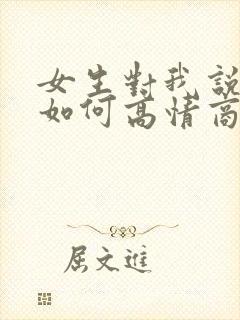 女生對我說
如何高情商
屈文進